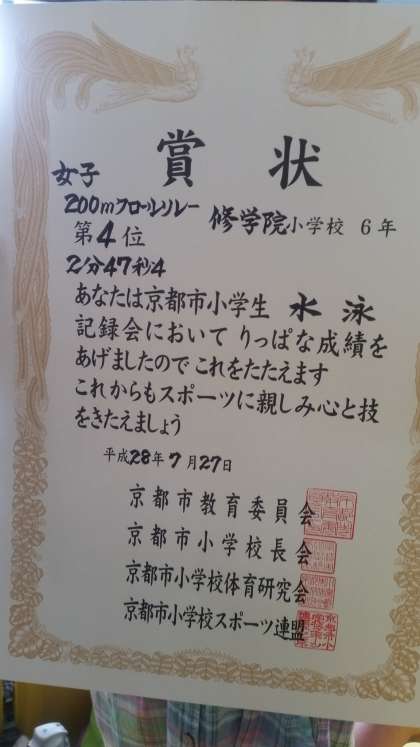 賞状
女子
200mフロールリレー 修学院小学校 6年
第4位
2分47秒4
あなたは京都市小学生 水泳
記録会において りっぱな成績を
あげましたので これをたたえます
これからもスポーツに親しみ心と技
をきたえましょう
平成28年7月27日
京都市教育委員会
京都市小学校長会
京都市小学校体育研究会
京都市小学校スポーツ連盟